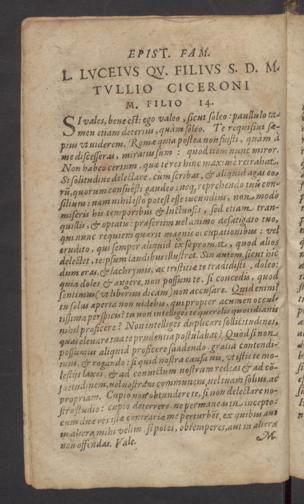 EPIST. FAM.
L. LVCEIVS QV. FILIVS S. D. M.
TVLLIO CICERONI
M. FILIO 14.
SI vales, bene est: ego valeo, sicut soleo: paullulo ta-
men etiam deterius, quàm soleo. Te requisiui sæ-
pius vt viderem. Romæ quia postea non fuisti, quàm à
me discesseras, miratus sum: quod item nunc miror.
Non habeo certum, quæ te res hinc maximè retrahat.
Si solitudine delectare, cum scribas, & aliquid agas eo-
rũ, quorum consuêsti: gaudeo; neq; reprehendo tuũ con-
silium: nam nihil isto potest esse iucundius, non modò
miseris his temporibus & luctuosis, sed etiam tran-
quillis, & optatis: præsertim vel animo defatigato tuo,
qui nunc requiem quærit magnis occupationibus: vel
erudito, qui semper aliquid ex se promat, quod alios
delectet, teipsum laudibus illustret. Sin autem, sicut hic
dum eras, & lachrymis, ac tristitiæ te tradidisti, doleo;
quia doles & angere, non possum te, si concedis, quod
sentimus, vt liberius dicam, non accusare. Quid enim?
tu solus aperta non videbis, qui propter acumen occul-
tissima perspicis? tu non intelliges te querelis quotidianis
nihil proficere? Non intelliges duplicari sollicitudines,
quas eleuare tua te prudentia postulabat? Quod si non
possumus aliquid proficere suadendo: gratia contendi-
mus, & rogando: si quid nostra causa vis, vt istis te mo-
lestijs laxes, & ad convictum nostrum redeas & ad cõ-
suetudinem, vel nostrã communem, vel tuam solius, ac
propriam. Cupio non obtundere te, si non delectare no-
stro studio: cupio deterrere, ne permaneas in incepto:
cum duæ res istæ contrariæ me perturbẽt, ex quibus aut
in altera mihi velim, si potes, obtemperes, aut in altera
non offendas. Vale.
M.